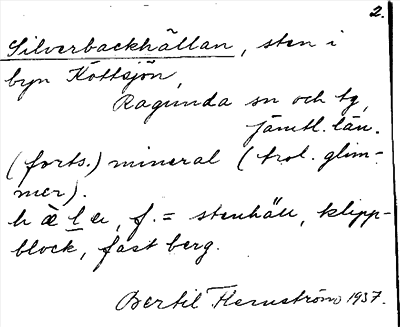 2.
Silverbackhällan, sten i
byn Köttsjön,
Ragunda sn och tg,
Jämtl. län.
(forts.) mineral (trol. glim-
mer).
h æ̀ l a, f. = stenhäll, klipp-
block, fast berg.
Bertil Flemström 1937.